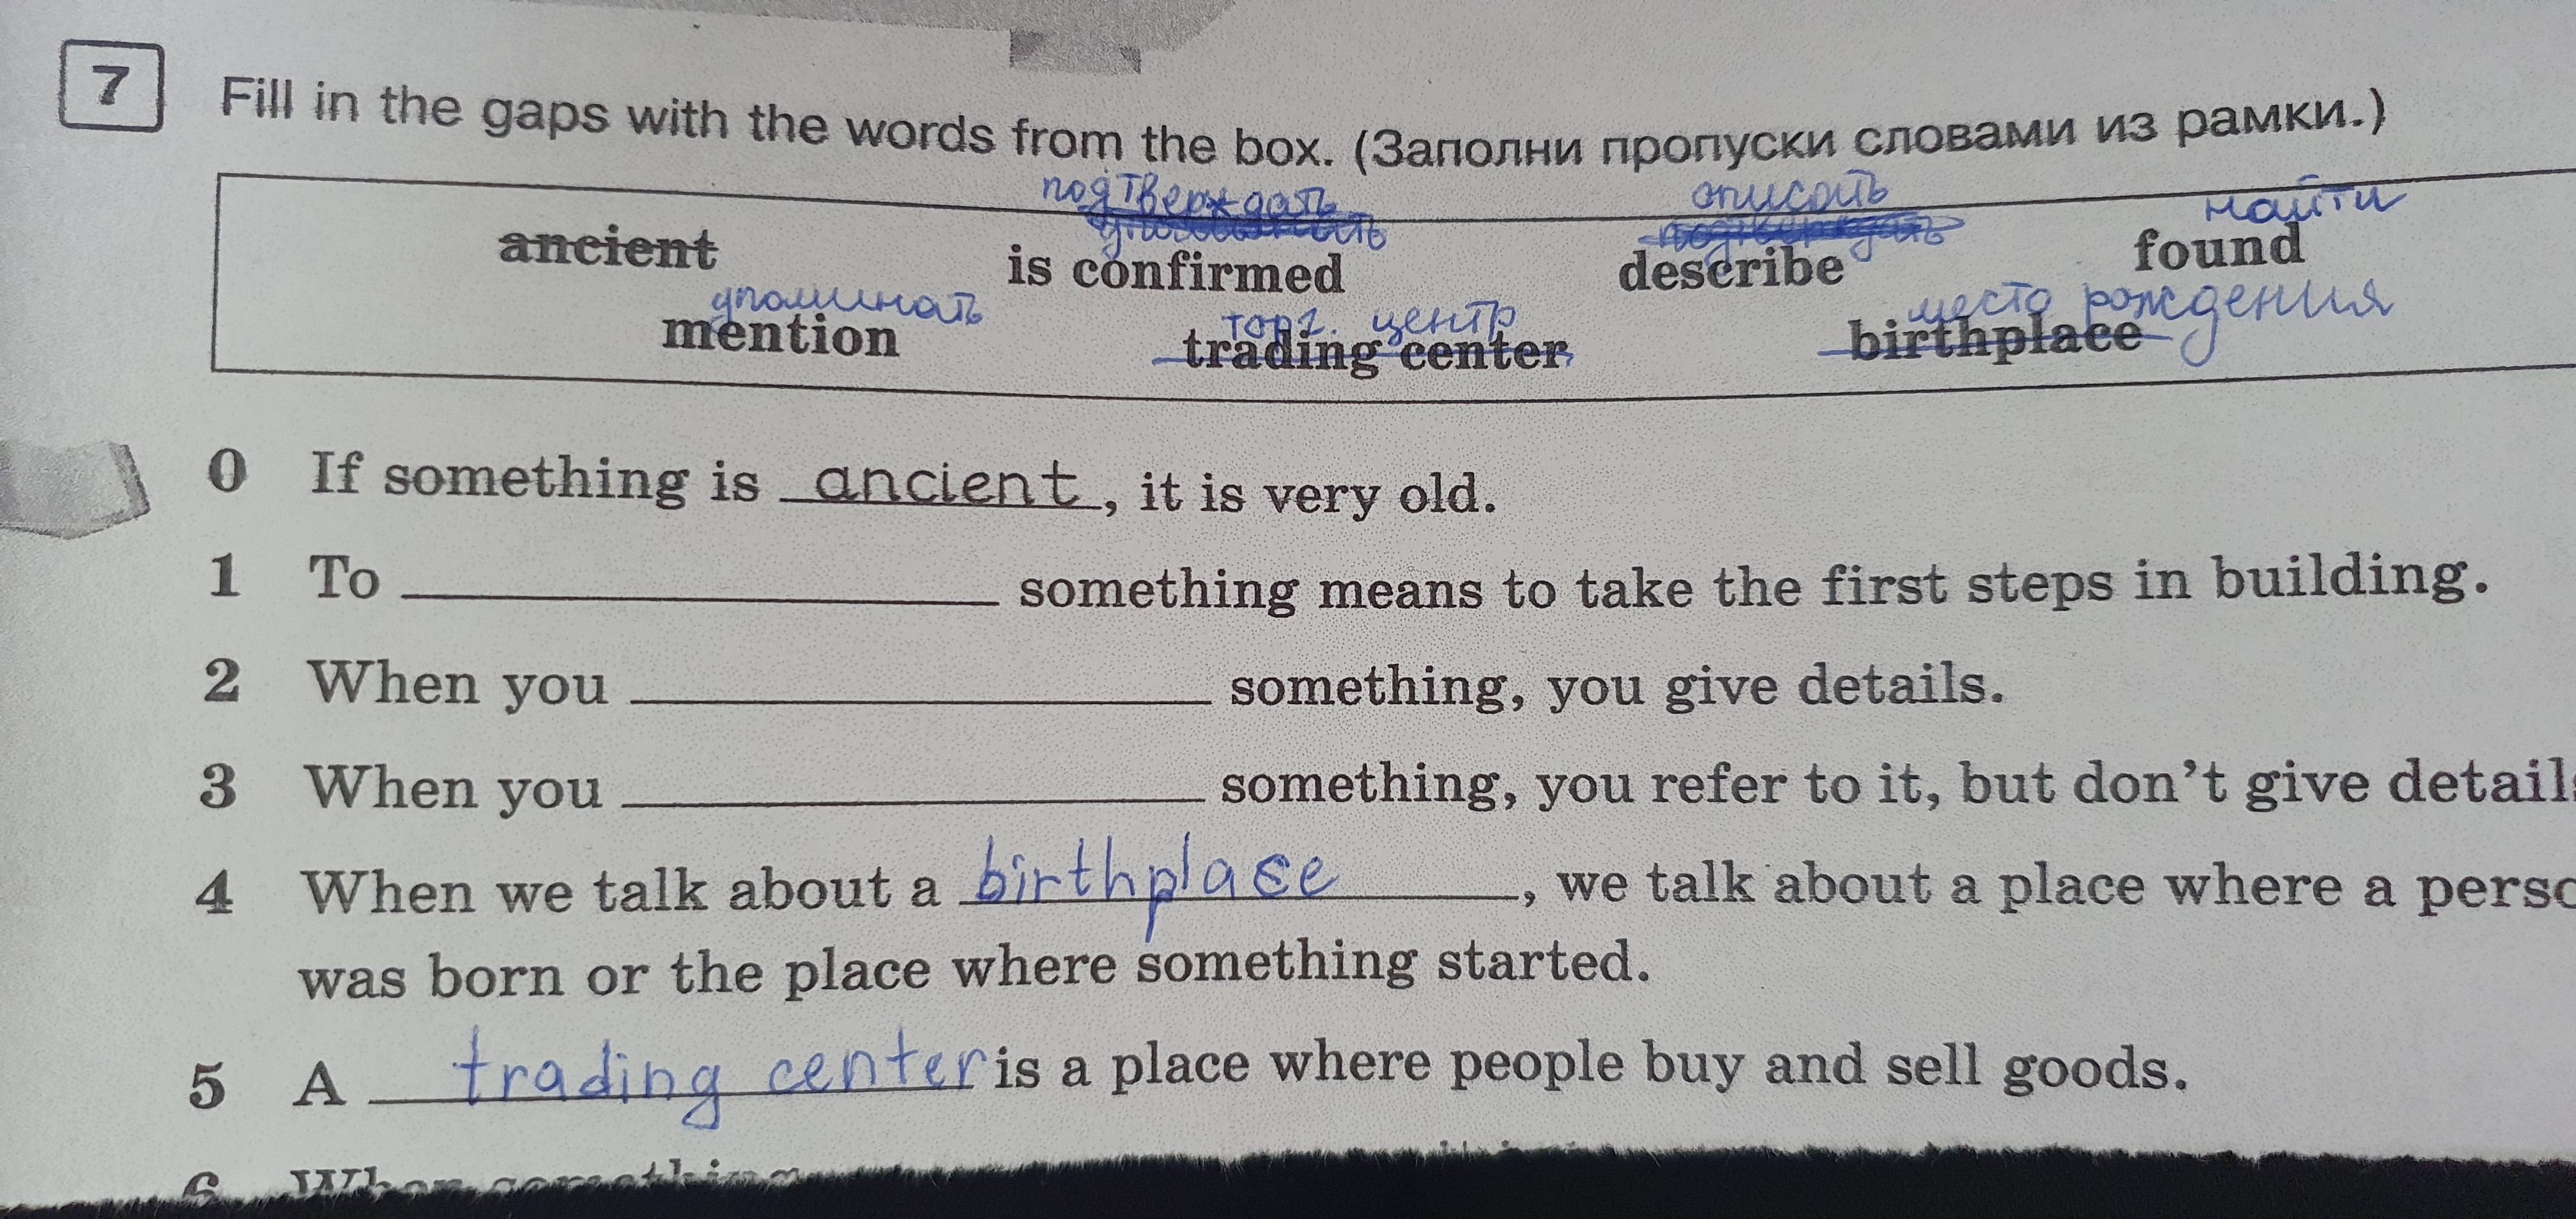 7 Fill in the gaps with the words from the box. (Заполни пропуски словами из рамки.)
подтверждать описать найти
ancient is confirmed describe found
упоминать торг. центр место рождения
mention trading center birthplace
0 If something is ancient, it is very old.
1 To ____________ something means to take the first steps in building.
2 When you ____________ something, you give details.
3 When you ____________ something, you refer to it, but don't give detail
4 When we talk about a birthplace, we talk about a place where a perso
was born or the place where something started.
5 A trading center is a place where people buy and sell goods.
6 When something